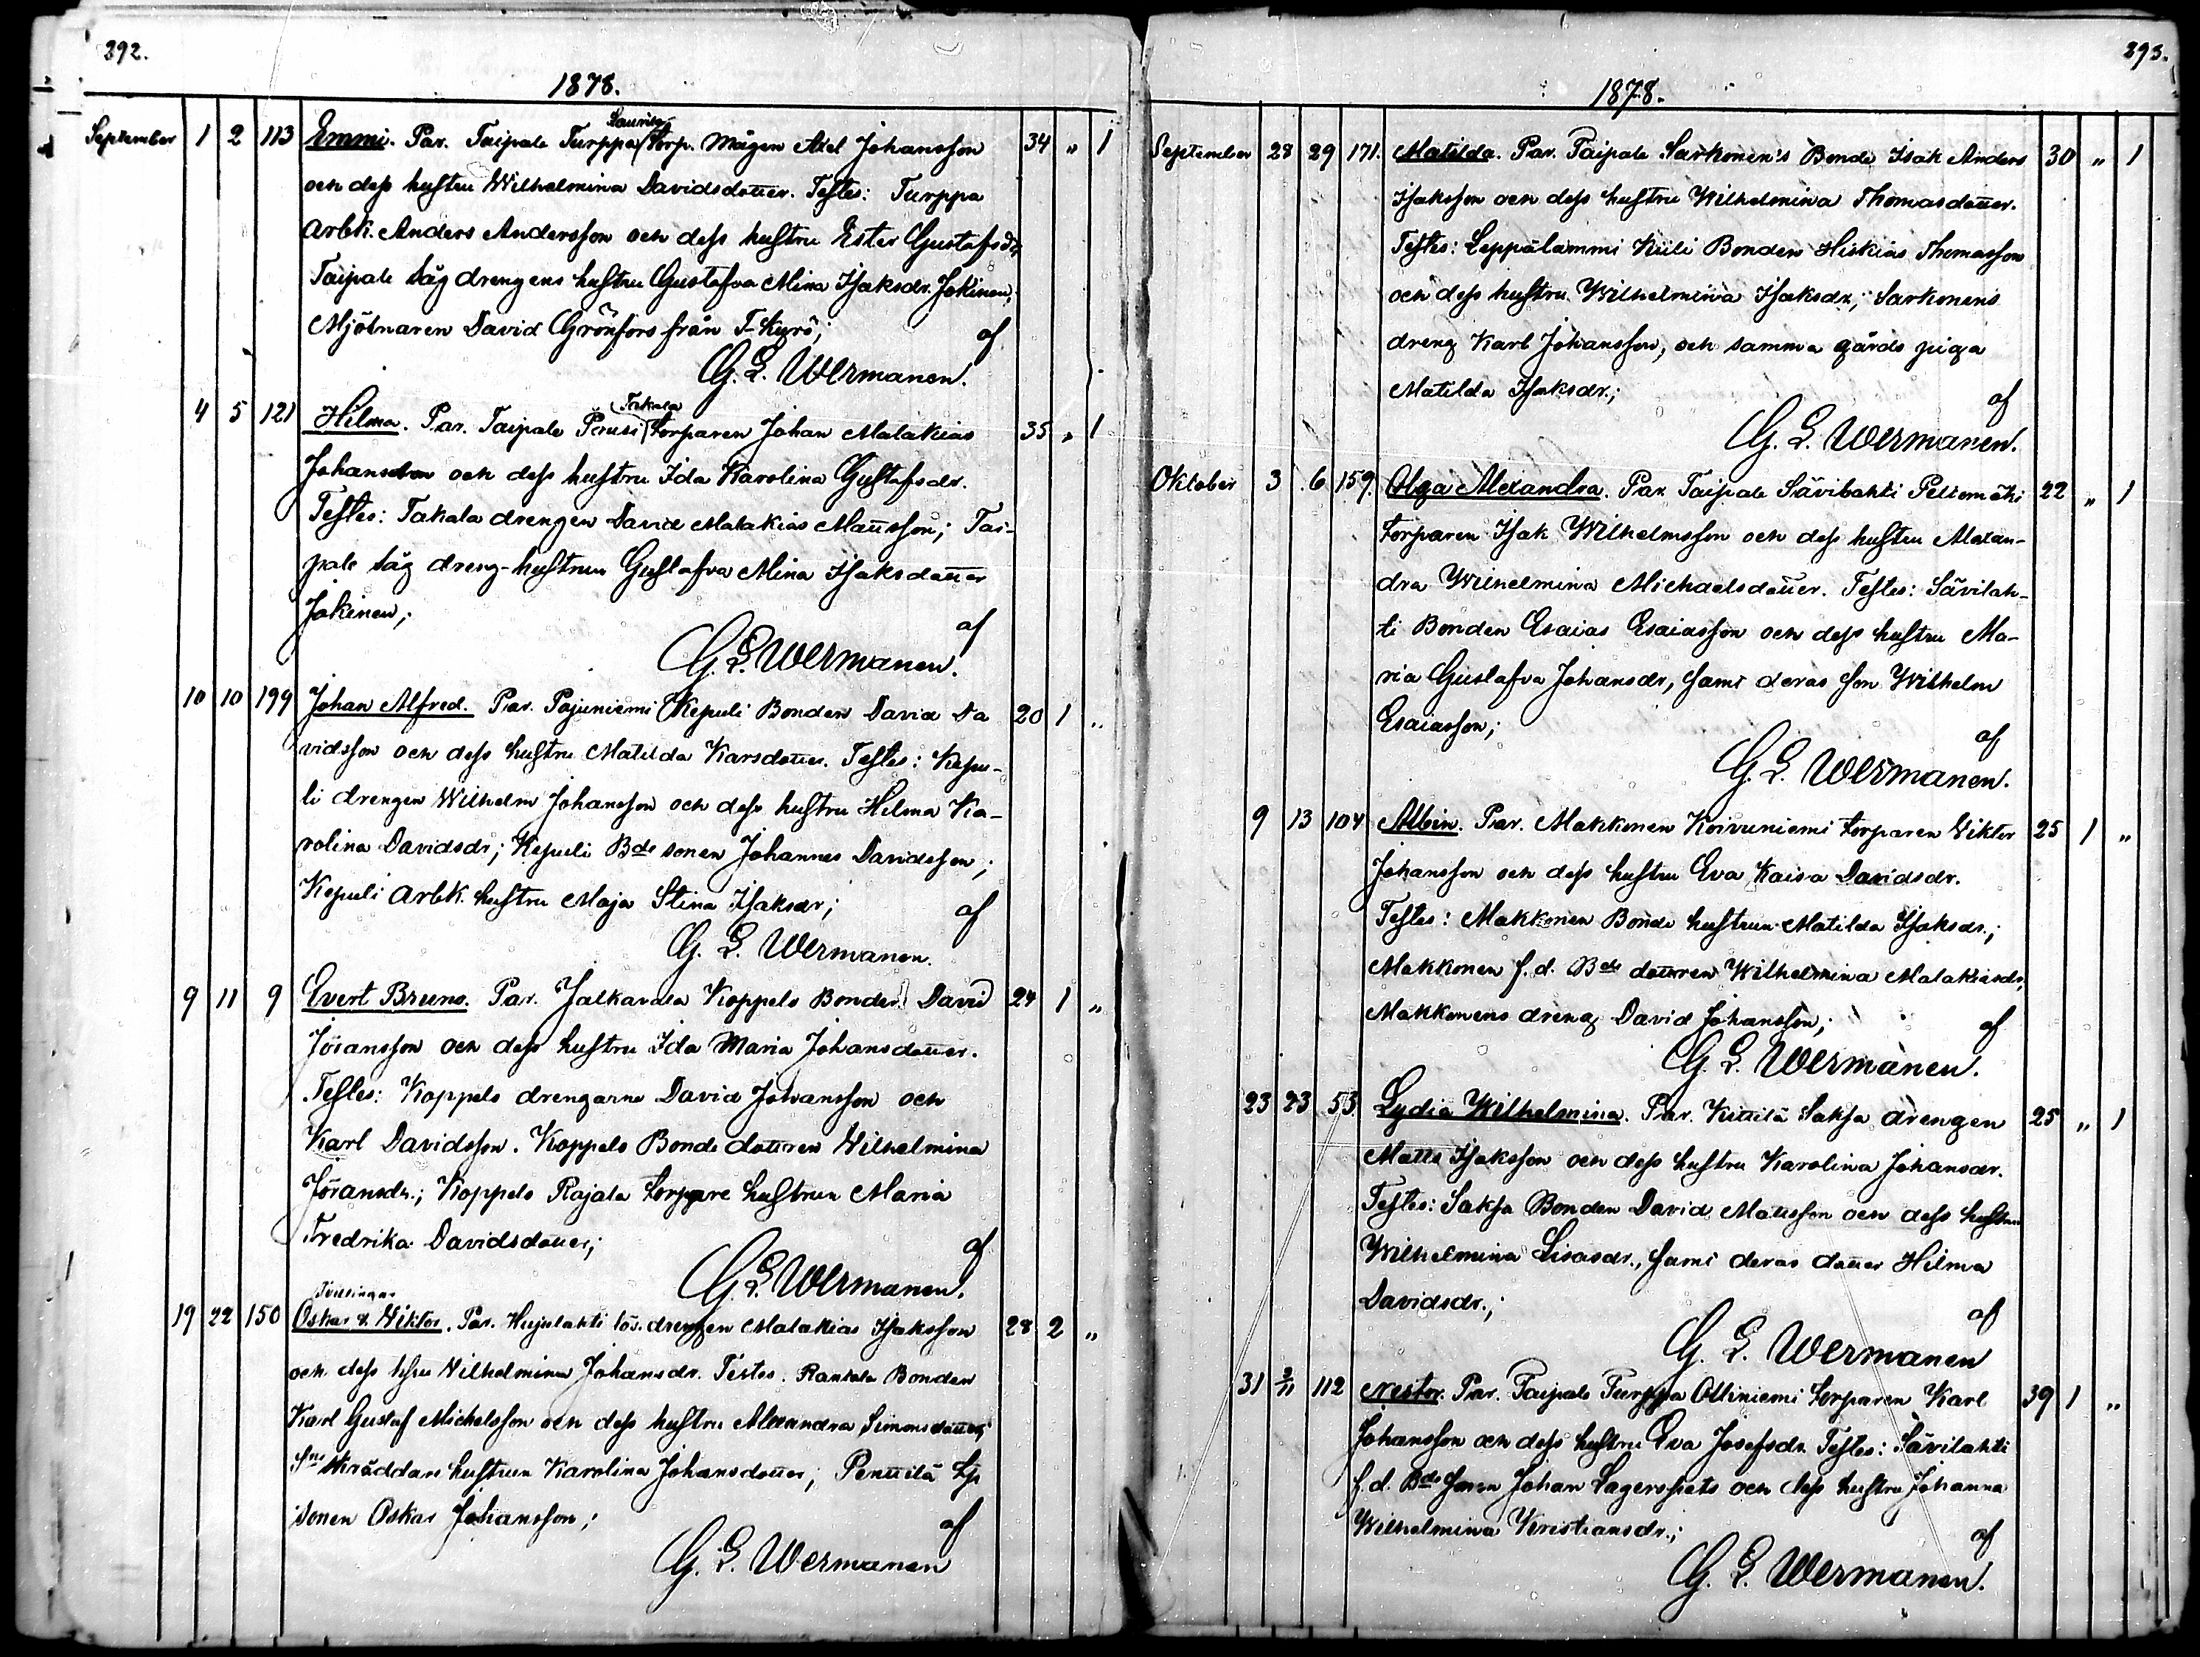 292.
1878.
September 1 2 113 Emmi. Par. Taipale Turppa Laurila Torp. Mågen Axel Johansson 34 " 1
och dess hustru Wilhelmina Davidsdotter. Testes: Turppa
Arbk. Anders Andersson och dess hustru Ester Gustafsdr,
Taipale såg drengens hustru Gustafva Mina Isaksdr. Jokinen,
Mjölnaren David Grönfors från T-Kyrö; af
G. L. Wermanen.
4 5 121 Hilma. Par. Taipale Perusi Takala Torparen Johan Malakias 35 " 1
Johansson och dess hustru Ida Karolina Gustafsdr.
Testes: Takala drengen David Malakias Mattsson; Tai-
pale såg dreng-hustrun Gustafva Mina Isaksdotter
Jokinen; af
G. L. Wermanen.
10 10 199 Johan Alfred. Par. Pajuniemi Kepuli Bonden David Da 20 1 "
vidsson och dess hustru Matilda Karsdotter. Testes: Kepu-
li drengen Wilhelm Johansson och dess hustru Hilma Ka-
rolina Davidsdr; Kepuli Bde sonen Johannes Davidsson;
Kepuli Arbk. hustru Maja Stina Isaksdr; af
G. L. Wermanen.
9 11 9 Evert Bruno. Par. Jalkavala Koppelo Bonden David 24 1 "
Jöransson och dess hustru Ida Maria Johansdotter.
Testes: Koppelo drengarne David Johansson och
Karl Davidsson. Koppelo Bonde dottren Wilhelmina
Jöransdr.; Koppelo Rajala torpare hustrun Maria
Fredrika Davidsdotter; af
G. L. Wermanen.
Tvillingar
19 22 150 Oskar & Viktor. Par. Hujulahti lös. drengen Malakias Isaksson 28 2 "
och dess hstru Vilhelmina Johansdr. Testes. Rantala Bonden
Karl Gustaf Michelsson och dess hustru Alexandra Simonsdotter;
Sne Skräddare hustrun Karolina Johansdotter; Penttilä Tp
sonen Oskar Johansson; af
G. L. Wermanen
293.
1878.
September 28 29 171. Matilda. Par. Taipale Sarkonen's Bonde Isak Anders 30 " 1
Isaksson och dess hustru Wilhelmina Thomasdotter.
Testes: Leppälammi Kuli Bonden Hiskias Thomasson
och dess hustru Wilhelmina Isaksdr; Sarkonens
dreng Karl Johansson, och samma gårds piga
Matilda Isaksdr.; af
G. L. Wermanen.
Oktober 3 6 159. Olga Alexandra. Par. Taipale Sävilahti Peltomäki 22 " 1
torparen Isak Wilhelmsson och dess hustru Alexan-
dra Wilhelmina Michaelsdotter. Testes: Sävilah-
ti Bonden Esaias Esaiasson och dess hustru Ma-
ria Gustafva Johansdr, samt deras son Wilhelm
Esaiasson; af
G. L. Wermanen.
9 13 104 Albin. Par. Makkonen Koivuniemi torparen Viktor 25 1 "
Johansson och dess hustru Eva Kaisa Davidsdr.
Testes: Makkonen Bonde hustrun Matilda Isaksdr.;
Makkonen f.d. Bde dottren Wilhelmina Malakiasdr,
Makkonens dreng David Johansson; af
G. L. Wermanen.
23 23 53 Lydia Wilhelmina. Par. Kittilä Saksa drengen 25 " 1
Matts Isaksson och dess hustru Karolina Johansdr.
Testes: Saksa Bonden David Mattsson och dess hustru
Wilhelmina Lisasdr., samt deras dotter Hilma
Davidsdr.; af
G. L. Wermanen
31 3/11 112 Nestor. Par. Taipale Turppa Ottiniemi torparen Karl 39 1 "
Johansson och dess hustru Eva Josefsdr. Testes: Sävilahti
f.d. Bde sonen Johan Lagerspets och dess hustru Johanna
Wilhelmina Kristiansdr.; af
G. L. Wermanen.